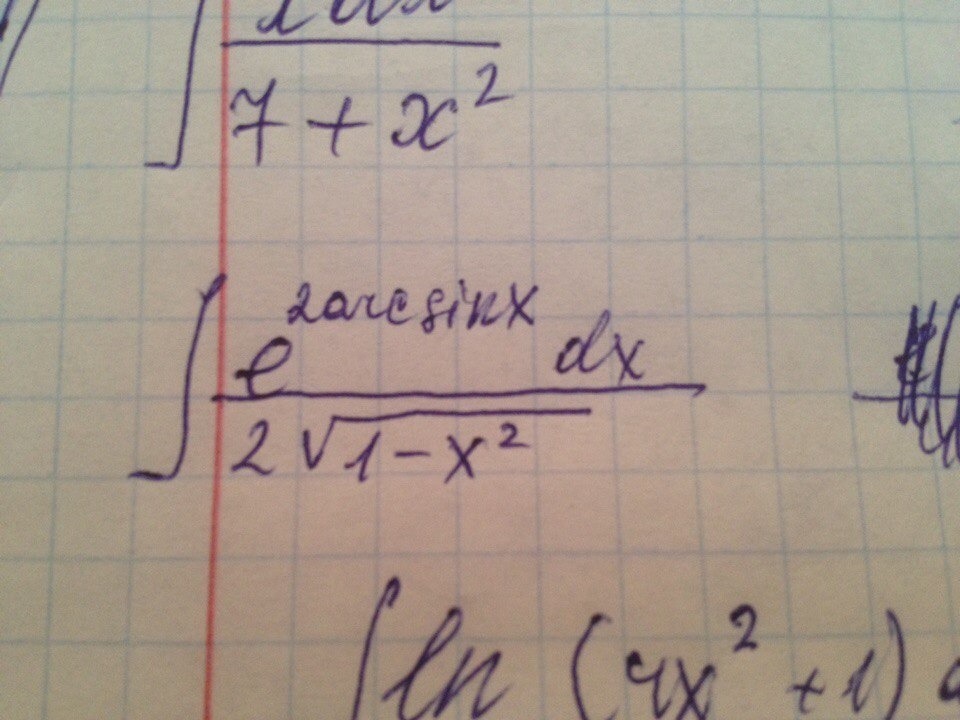 ∫ xdx / (7 + x²)
∫ e^(2arcsinx) dx / (2√(1-x²))
∫ ln (4x² + 1)